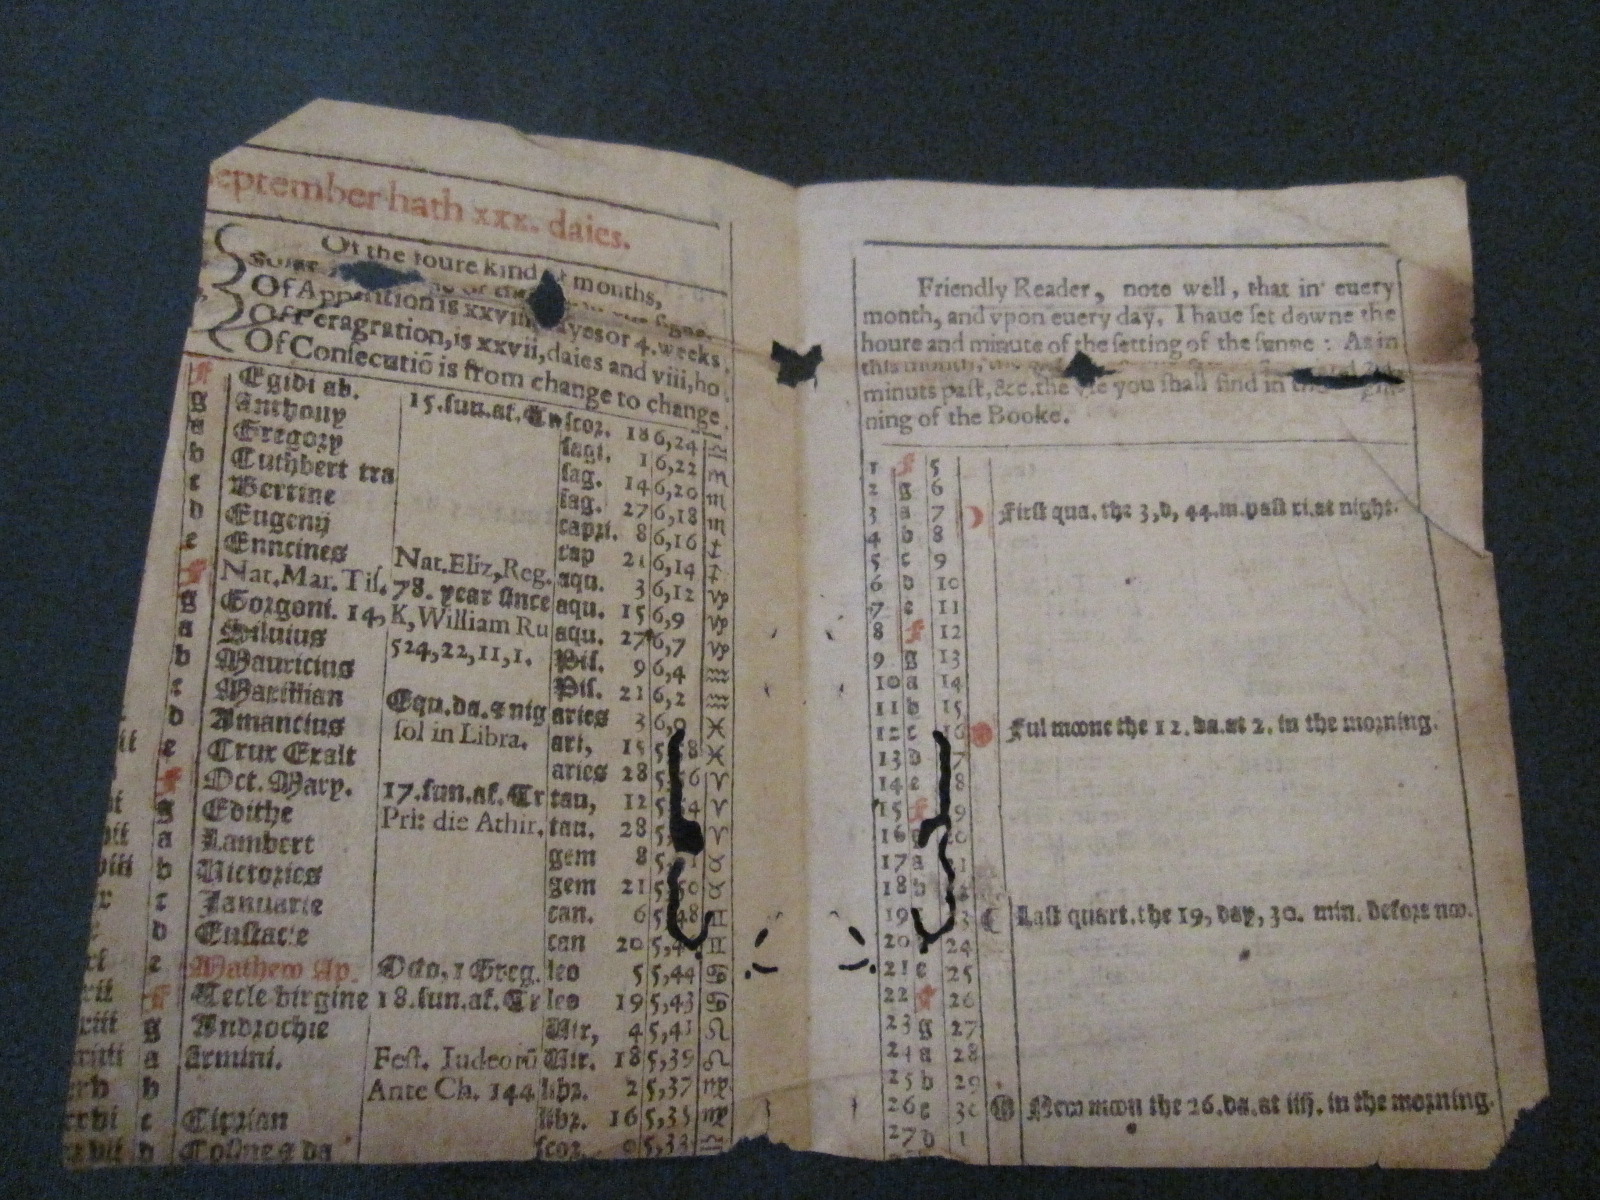 eptember hath xxx. daies.
Of the foure kind months,
Of Apparition is xxviii, dayes or 4. weeks.
Of Peragration, is xxvii, daies and viii, ho.
Of Consecutiō is from change to change.
f Egidi ab. 15. sun. af. Tr scoz. 18 6,24 ♎
g Anthony sagi. 1 6,22 ♏
a Gregozy sag. 14 6,20 ♏
b Cuthbert tra sag. 27 6,18 ♏
c Bertine capzi. 8 6,16 ♐
d Eugenij cap 21 6,14 ♐
e Enncines Nat. Eliz, Reg. aqu. 3 6,12 ♑
f Nat. Mar. Tis. 78. year since aqu. 15 6,9 ♑
g Gozgoni. 14, K, William Ru aqu. 27 6,7 ♑
a Siluius 524,22,11,1. Pis. 9 6,4 ♒
b Mauricius Pis. 21 6,2 ♒
c Maximian Equ. da. & nig aries 3 6,0 ♓
d Amancius sol in Libra. ari, 15 ♓
e Crux Exalt aries 28 ♈
f Oct. Mary. 17. sun. af. Tr tau, 12 ♈
g Edithe Pri: die Athir, tau. 28 ♈
a Lambert gem 8 ♉
b Victozies gem 21 ♉
c Januarie can. 6 5,48 ♊
d Eustace can 20 ♊
e Mathew Ap. Octo, 1 Greg. leo 5 5,44 ♋
f Tecle virgine 18. sun. af. Tr leo 19 5,43 ♋
g Andzochie Uir, 4 5,41 ♌
a Armini. Fest. Iudeorū Uir. 18 5,39 ♌
b Ante Ch. 144 libz. 2 5,37 ♍
c Cipzian libz. 16 5,35 ♍
d Cosme & da scoz. 0 5,33 ♎
Friendly Reader, note well, that in euery
month, and vpon euery day, I haue set downe the
houre and minute of the setting of the sunne : As in
this month,
minuts past, &c. the vse you shall find in the
ning of the Booke.
1 f 5
2 g 6
3 a 7 First qua. the 3, d, 44. m. past xi. at night.
4 b 8
5 c 9
6 d 10
7 e 11
8 f 12
9 g 13
10 a 14
11 b 15
12 c 16 Ful moone the 12. da. at 2. in the mozning.
13 d 7
14 e 8
15 f 9
16 g 20
17 a 21
18 b
19 3 Last quart. the 19, day, 30. min. befoze noo.
20 24
21 e 25
22 f 26
23 g 27
24 a 28
25 b 29
26 c 30 New moon the 26. da. at iiij. in the mozning.
27 d 1